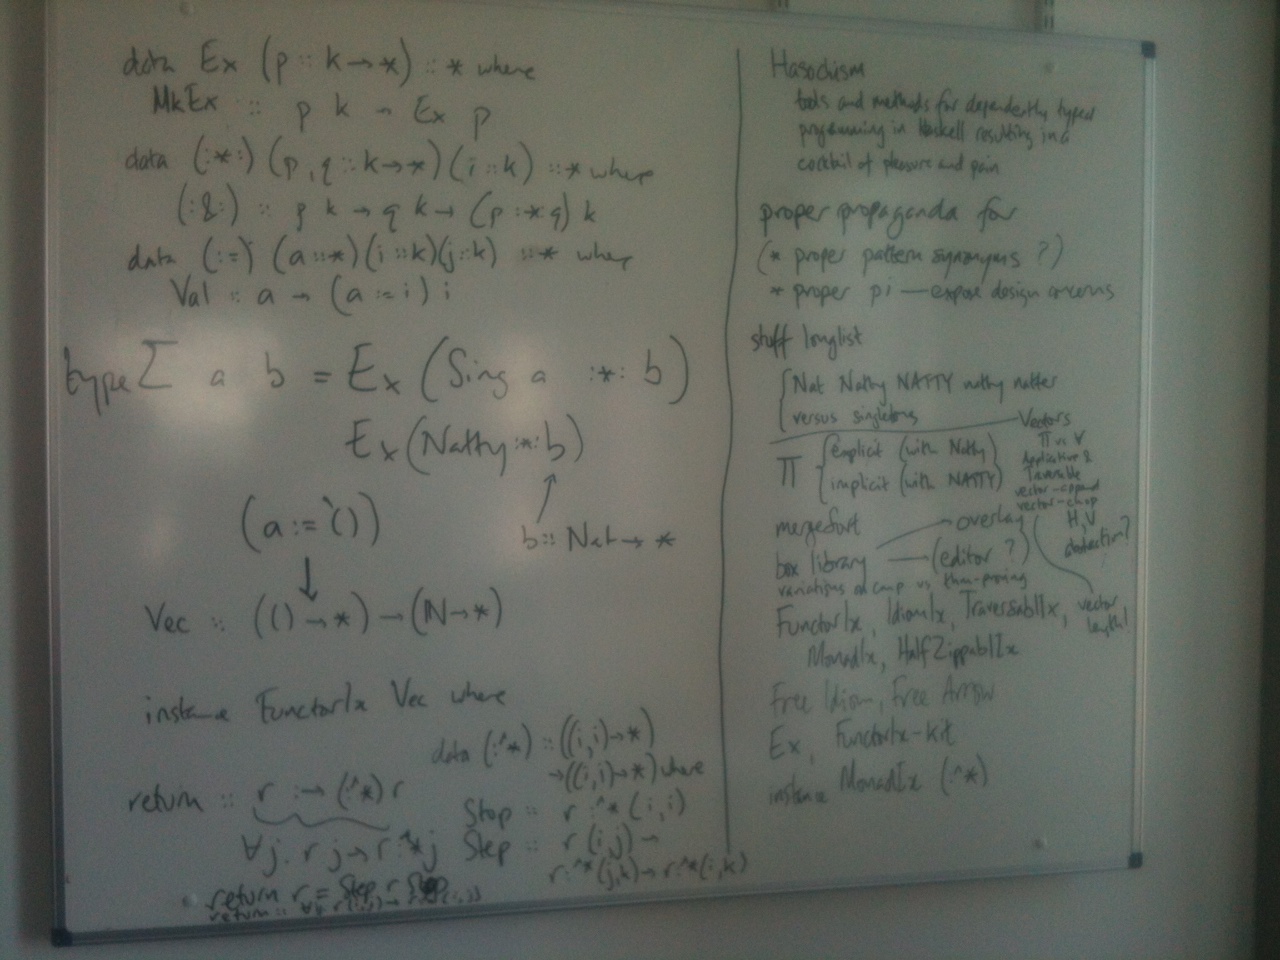 data Ex (p :: k → *) :: * where
MkEx :: p k → Ex p
data (:*:) (p, q :: k → *) (i :: k) :: * where
(:&:) :: p k → q k → (p :*: q) k
data (:=) (a :: *) (i :: k) (j :: k) :: * where
Val :: a → (a := i) i
type Σ a b = Ex (Sing a :*: b)
Ex (Natty :*: b)
(a := '())
b :: Nat → *
Vec :: (() → *) → (ℕ → *)
instance FunctorIx Vec where
data (:^*) :: ((i,i) → *)
→ ((i,i) → *) where
return :: r :→ (:^*) r
Stop :: r :^* (i,i)
∀j. r j → r :^* j
Step :: r (i,j) →
r :^* (j,k) → r :^* (i,k)
return r = Step r Stop
return ::
Hasochism
tools and methods for dependently typed
programming in Haskell resulting in a
cocktail of pleasure and pain
proper propaganda for
(* proper pattern synonyms ?)
* proper pi — expose design concerns
stuff longlist
Nat Natty NATTY natty natter
versus singletons
Vectors
Π vs ∀
Applicative &
Traversable
vector-append
vector-chop
Π { explicit (with Natty)
implicit (with NATTY)
mergeSort
box library
overlay
(editor ?)
H,V
abstraction?
variations on cmp vs thm-proving
vector
length!
FunctorIx, IdiomIx, TraversableIx,
MonadIx, HalfZippableIx
Free Idiom, Free Arrow
Ex, FunctorIx-kit
instance MonadIx (:^*)